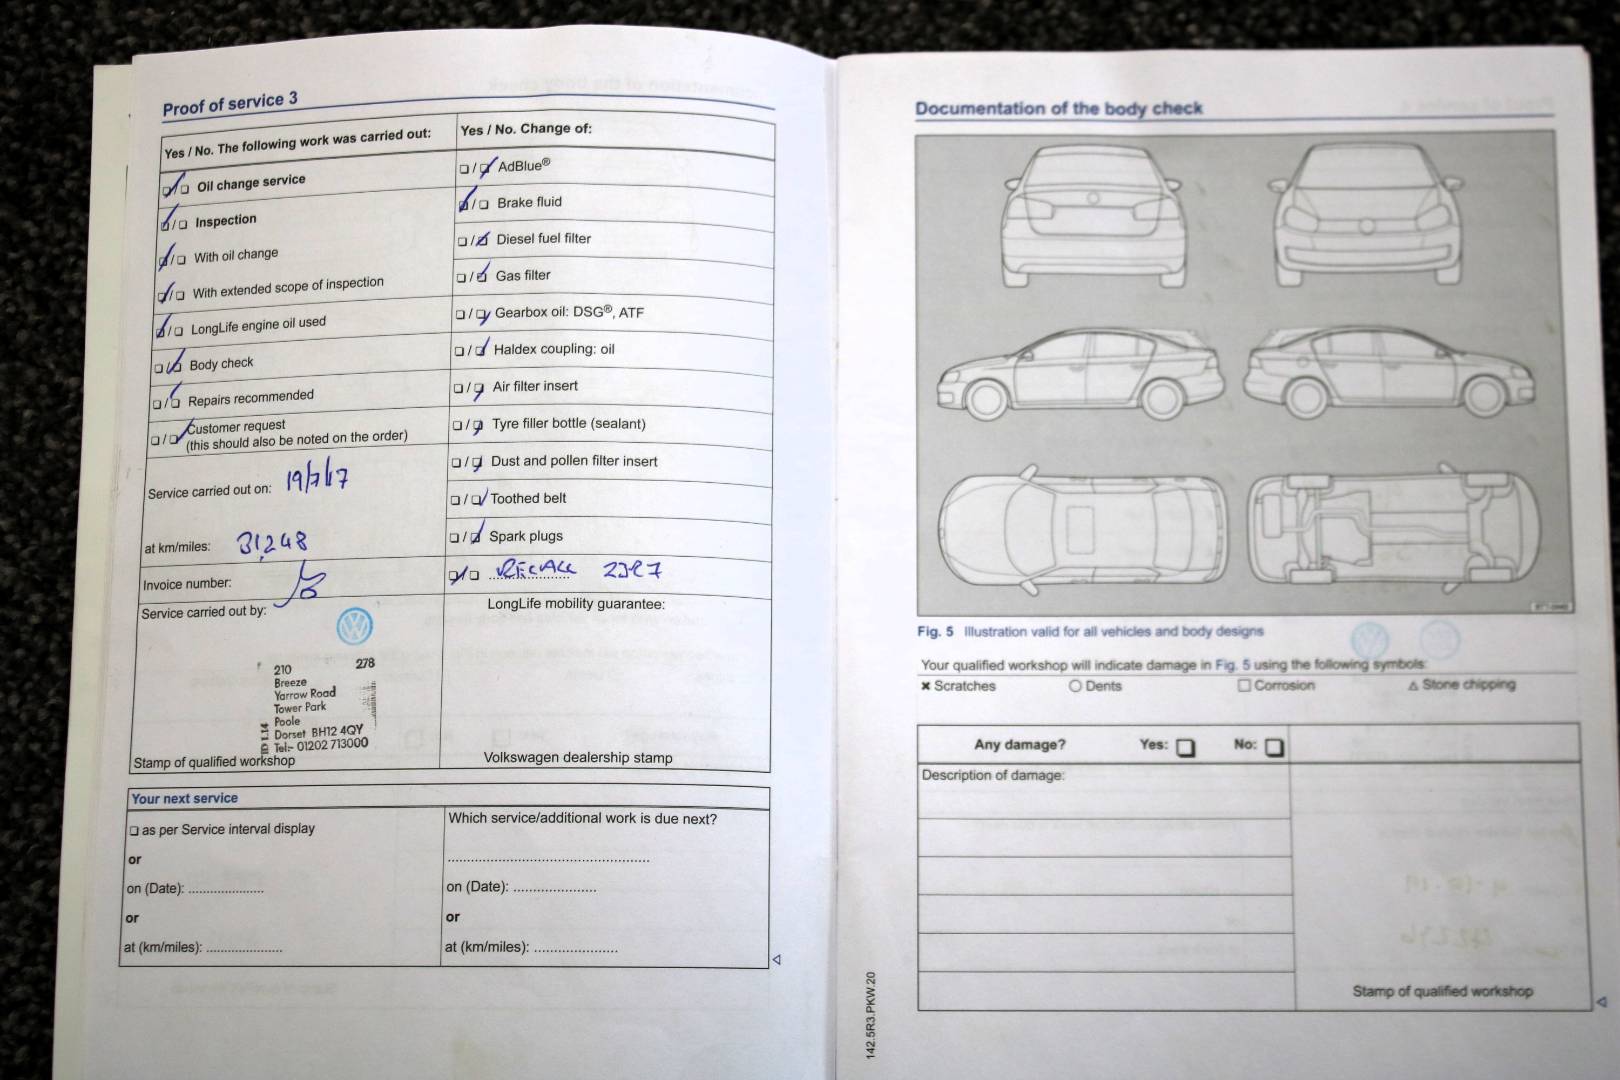 Proof of service 3
Yes / No. The following work was carried out:
☑/☐ Oil change service
☑/☐ Inspection
☑/☐ With oil change
☑/☐ With extended scope of inspection
☑/☐ LongLife engine oil used
☐/☑ Body check
☐/☑ Repairs recommended
☐/☑ Customer request
(this should also be noted on the order)
Service carried out on: 19/7/17
at km/miles: 31,248
Invoice number:
Service carried out by:
210 278
Breeze
Yarrow Road
Tower Park
Poole
Dorset BH12 4QY
Tel:- 01202 713000
Stamp of qualified workshop
Yes / No. Change of:
☐/☑ AdBlue®
☑/☐ Brake fluid
☐/☑ Diesel fuel filter
☐/☑ Gas filter
☐/☑ Gearbox oil: DSG®, ATF
☐/☑ Haldex coupling: oil
☐/☑ Air filter insert
☐/☑ Tyre filler bottle (sealant)
☐/☑ Dust and pollen filter insert
☐/☑ Toothed belt
☐/☑ Spark plugs
☑/☐ RECALL
LongLife mobility guarantee:
Volkswagen dealership stamp
Your next service
☐ as per Service interval display
or
on (Date): ...................
or
at (km/miles): ...................
Which service/additional work is due next?
..................................................
on (Date): .....................
or
at (km/miles): .....................
Documentation of the body check
Fig. 5 Illustration valid for all vehicles and body designs
Your qualified workshop will indicate damage in Fig. 5 using the following symbols:
✖ Scratches ○ Dents ☐ Corrosion △ Stone chipping
Any damage? Yes: ☐ No: ☐
Description of damage:
Stamp of qualified workshop
142.5R3.PKW.20